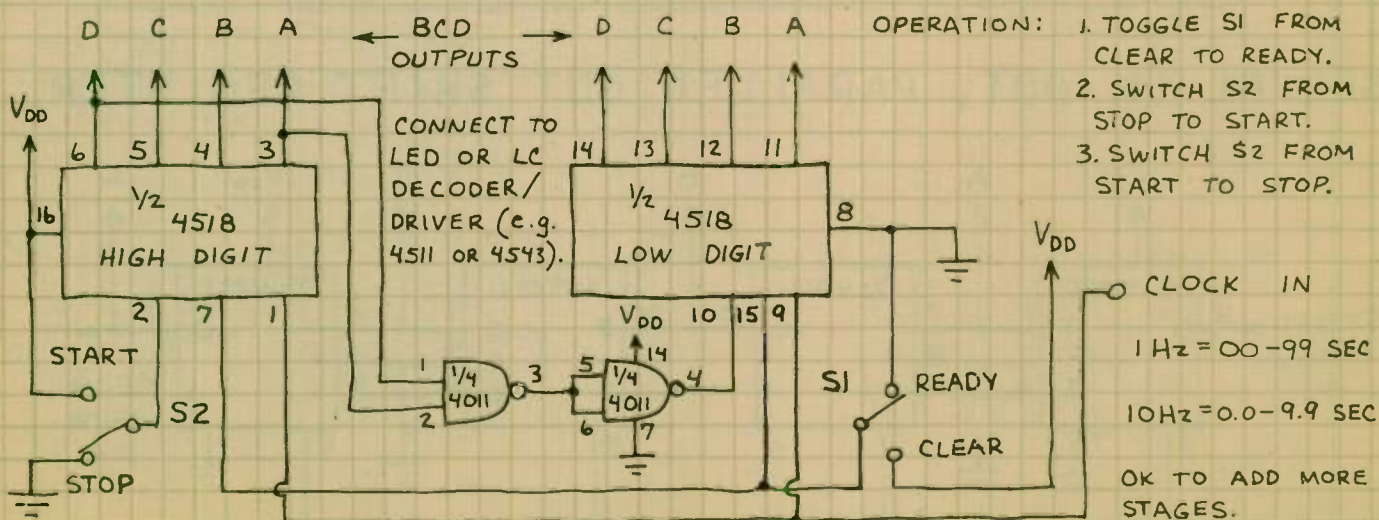 D C B A
← BCD → 
OUTPUTS
D C B A
OPERATION: 1. TOGGLE S1 FROM
CLEAR TO READY.
2. SWITCH S2 FROM
STOP TO START.
3. SWITCH S2 FROM
START TO STOP.
VDD
6 5 4 3
16
1/2
4518
HIGH DIGIT
2 7 1
CONNECT TO
LED OR LC
DECODER/
DRIVER (e.g.
4511 OR 4543).
14 13 12 11
1/2
4518
LOW DIGIT
8
10 15 9
START
S2
STOP
1
2
1/4
4011
3
VDD
14
5
6
1/4
4011
4
7
VDD
S1
READY
CLEAR
CLOCK IN
1 Hz = 00-99 SEC
10Hz = 0.0-9.9 SEC
OK TO ADD MORE
STAGES.